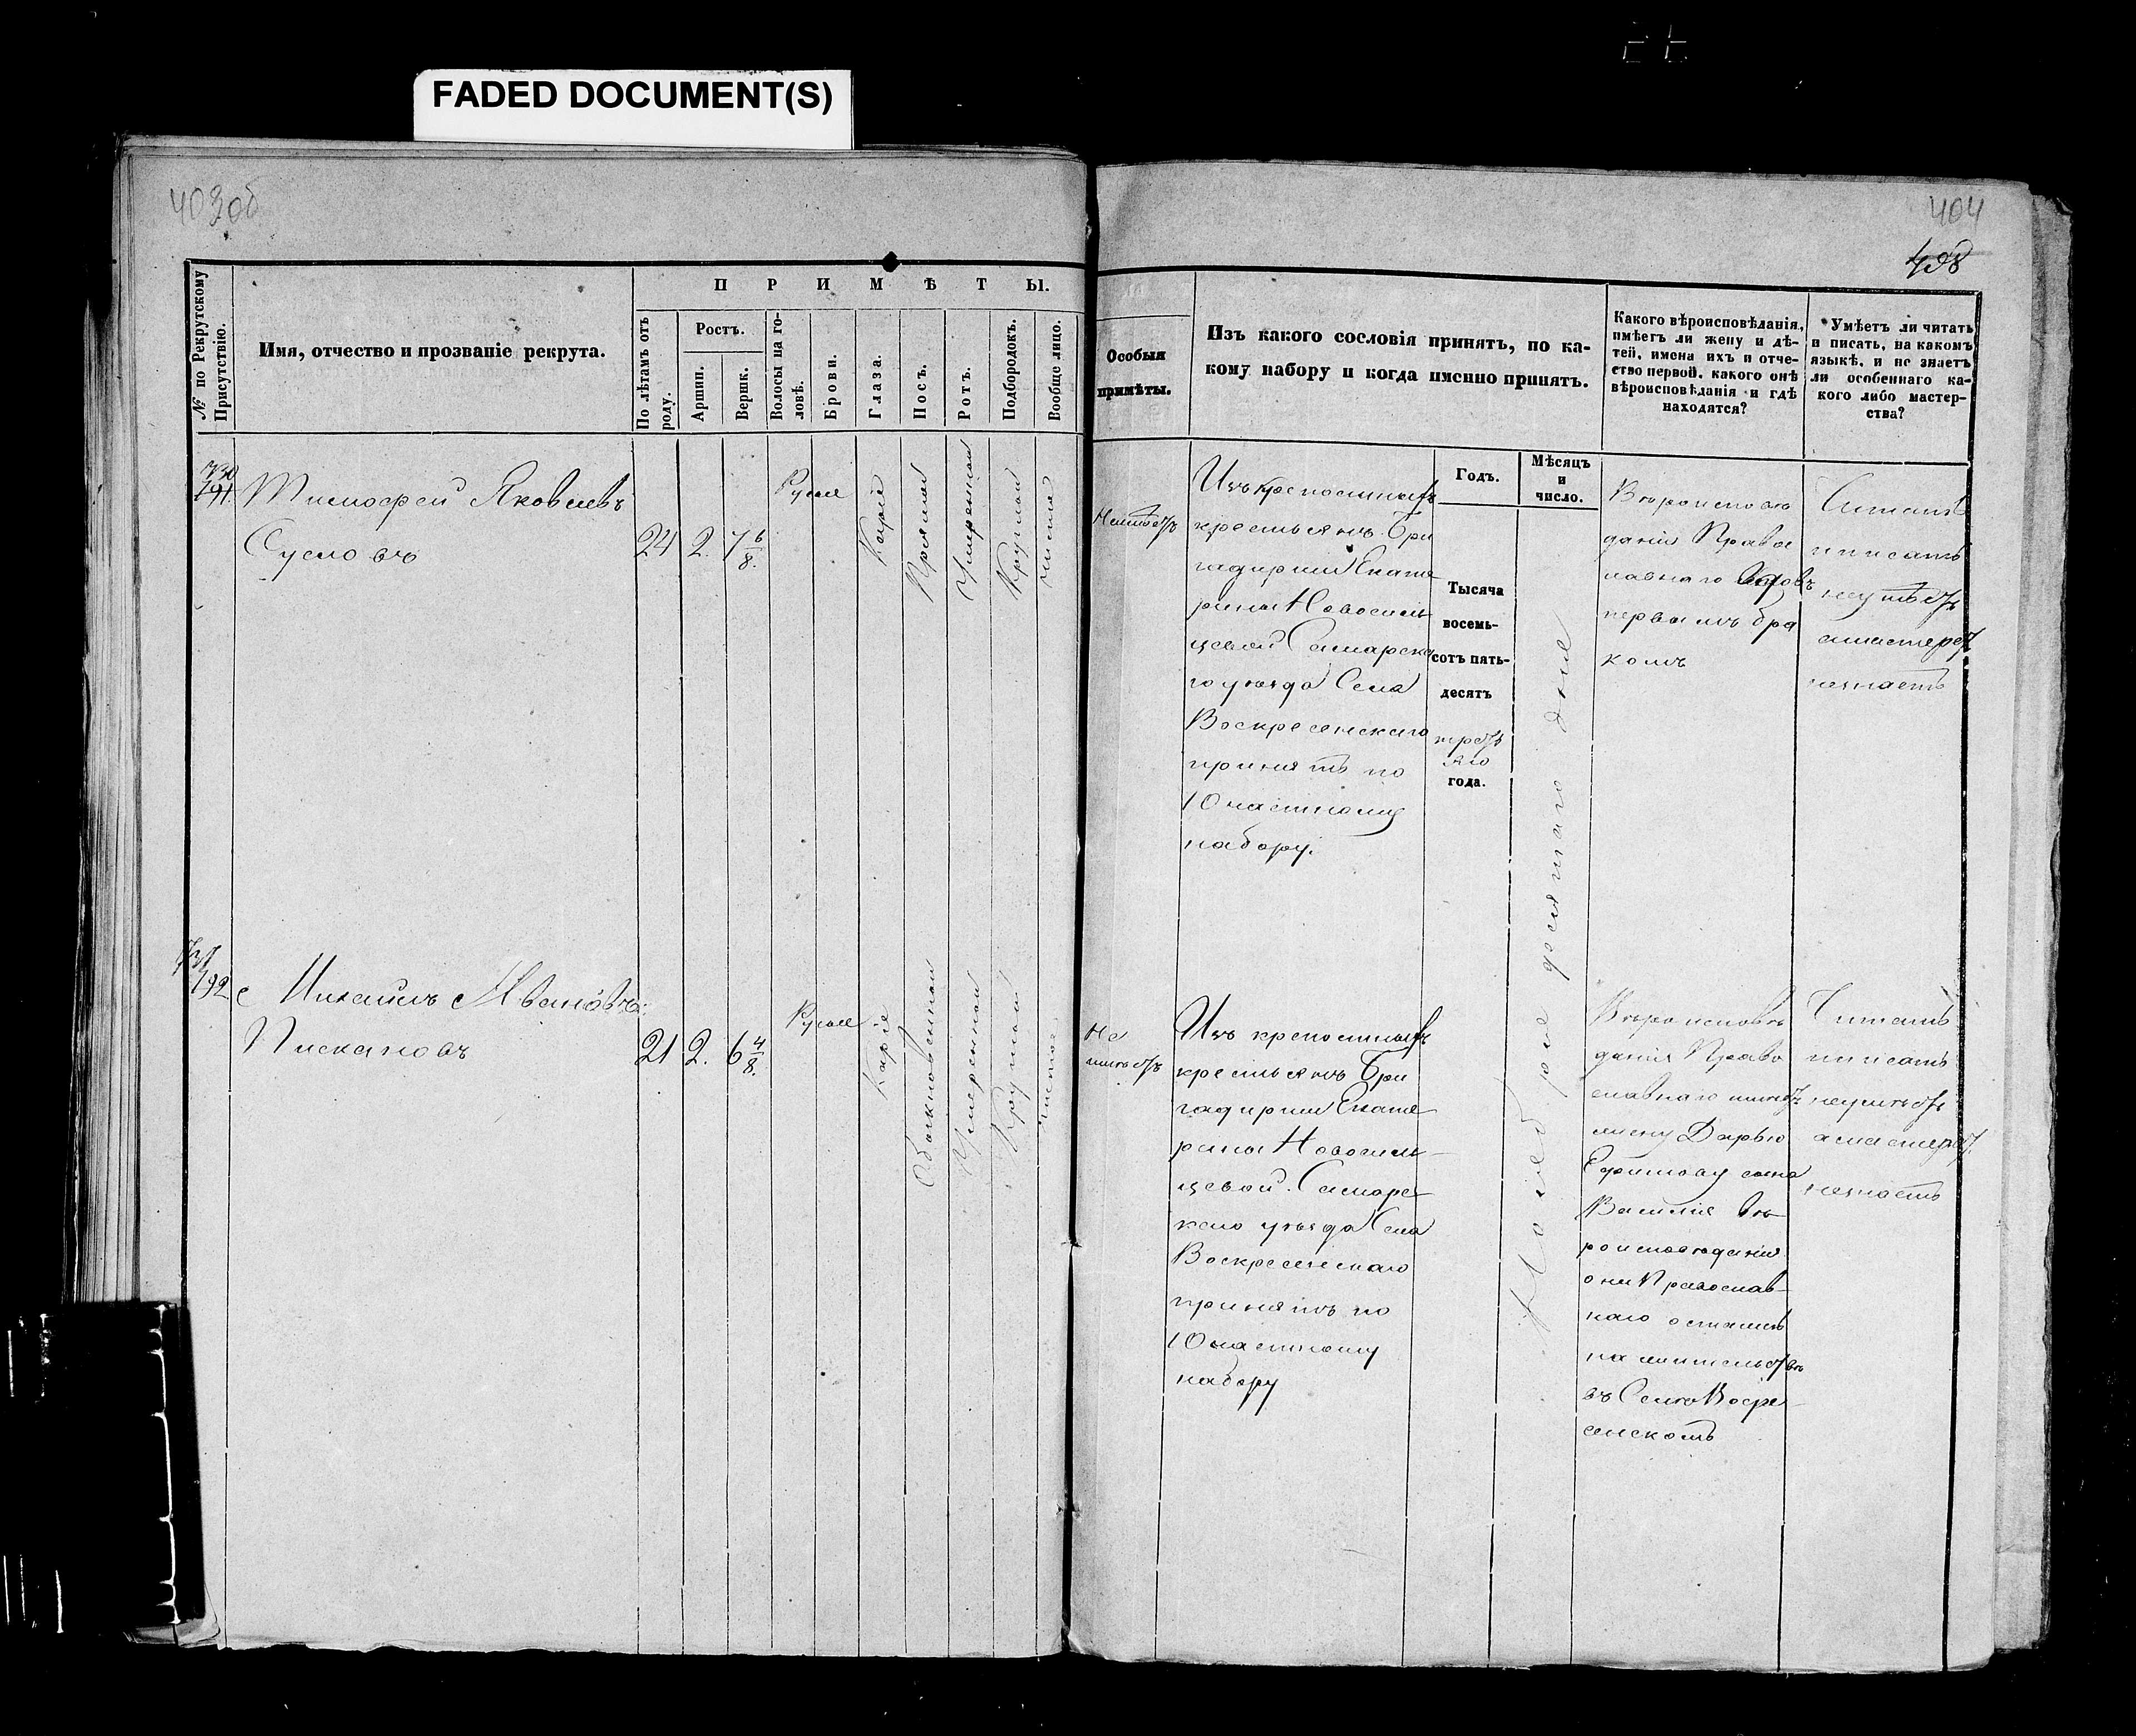 FADED DOCUMENT(S)
403об
404
498
№ по Рекрутскому Присутствію.
Имя, отчество и прозваніе рекрута.
ПРИМѢТЫ.
По лѣтамъ отъ роду.
Ростъ.
Аршин.
Вершк.
Волосы на головѣ.
Брови.
Глаза.
Носъ.
Ротъ.
Подбородокъ.
Вообще лицо.
Особыя
примѣты.
Изъ какого сословія принятъ, по ка-
кому набору и когда именно принятъ.
Какого вѣроисповѣданія,
имѣетъ ли жену и дѣ-
тей, имена ихъ и отче-
ство первой, какого онѣ
вѣроисповѣданія и гдѣ
находятся?
Умѣетъ ли читать
и писать, на какомъ
языкѣ, и не знаетъ
ли особеннаго ка-
кого либо мастер-
ства?
Годъ.
Мѣсяцъ
и
число.
730
191.
Тимофей Яковлевъ
Сусловъ
24 2. 7 6/8.
Русые
Каріе
Прямой
Умеренной
Круглой
чистое
Неимѣетъ
Изъ крепостныхъ
крестьянъ Бри
гадирши Екате
рины Новосиль
цевой Самарска
го уезда Села
Воскресенскаго
принятъ по
10 частному
набору.
Тысяча
восемь-
сотъ пять-
десятъ
треть
яго
года.
Ноября десятаго дня
Вероиспове
данія Правос
лавнаго Вдовъ
первымъ бра
комъ
Читать
и писать
неумѣетъ
а мастерст.
незнаетъ
731
192
Михаилъ Ивановъ
Пискановъ
21 2. 6 4/8.
Русые
Каріе
Обыкновенной
Умеренной
Круглой
Чистое
Не
имѣетъ
Изъ крепостныхъ
крестьянъ Бри
гадирши Екате
рины Новосиль-
цевой. Самарс-
каго уезда Села
Воскресенскаго
принятъ по
10 частному
набору
Вероисповѣ
данія Право
славнаго имеетъ
жену Дарью
Ефимову сына
Василія вѣ-
роисповеданія
они Православ-
наго остались
на жительствѣ
въ Селѣ Воскре-
сенскомъ
Читать
и писать
неумѣетъ
а мастерст.
незнаетъ